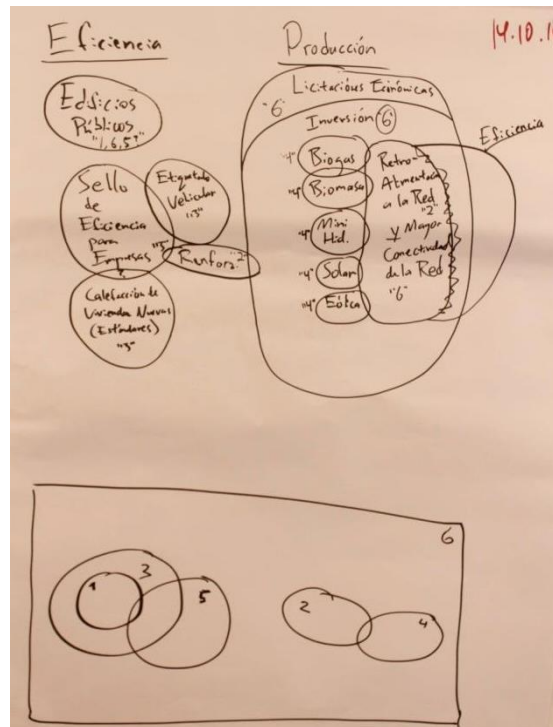 Eficiencia
Edificios
Públicos
"1,6,5?"
Sello
de
Eficiencia
para
Empresas "5"
Etiquetado
Vehicular
"3"
"2"
Calefacción de
Viviendas Nuevas
(Estándares)
"3"
Producción
14.10.1
Licitaciones Económicas
"6"
Inversión "6"
"4" Biogas
"4" Biomasa
"4" Mini
Hid.
"4" Solar
"4" Eólica
Retro-
Alimentación
a la Red
"2"
y Mayor
Conectividad
de la Red
"6"
Eficiencia
6
1
3
5
2
4